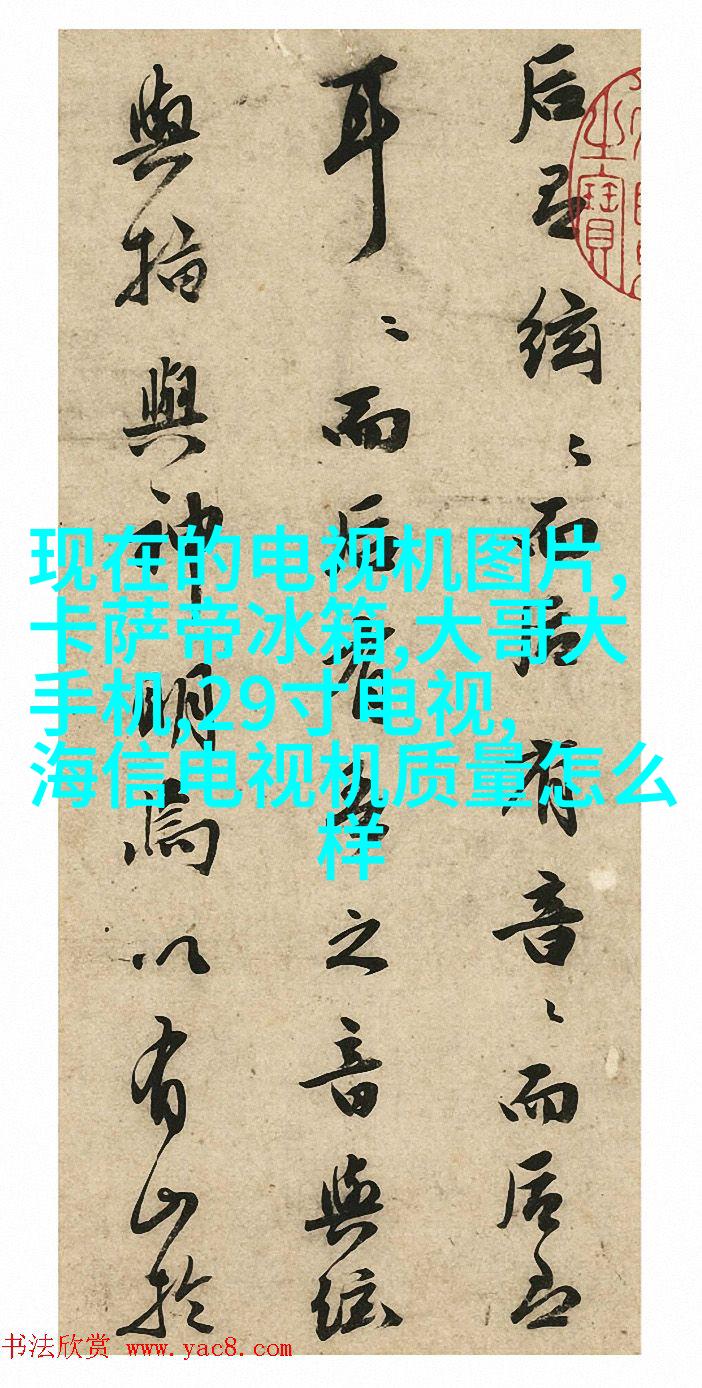 现在的电视机图片,
卡萨帝冰箱,大哥大
手机,29寸电视,
海信电视机质量怎么
样
后絃〻而后有音〻而后
耳〻而后之音與絃
與指與神明焉以有山於
之寶
书法欣赏 www.yac8.com